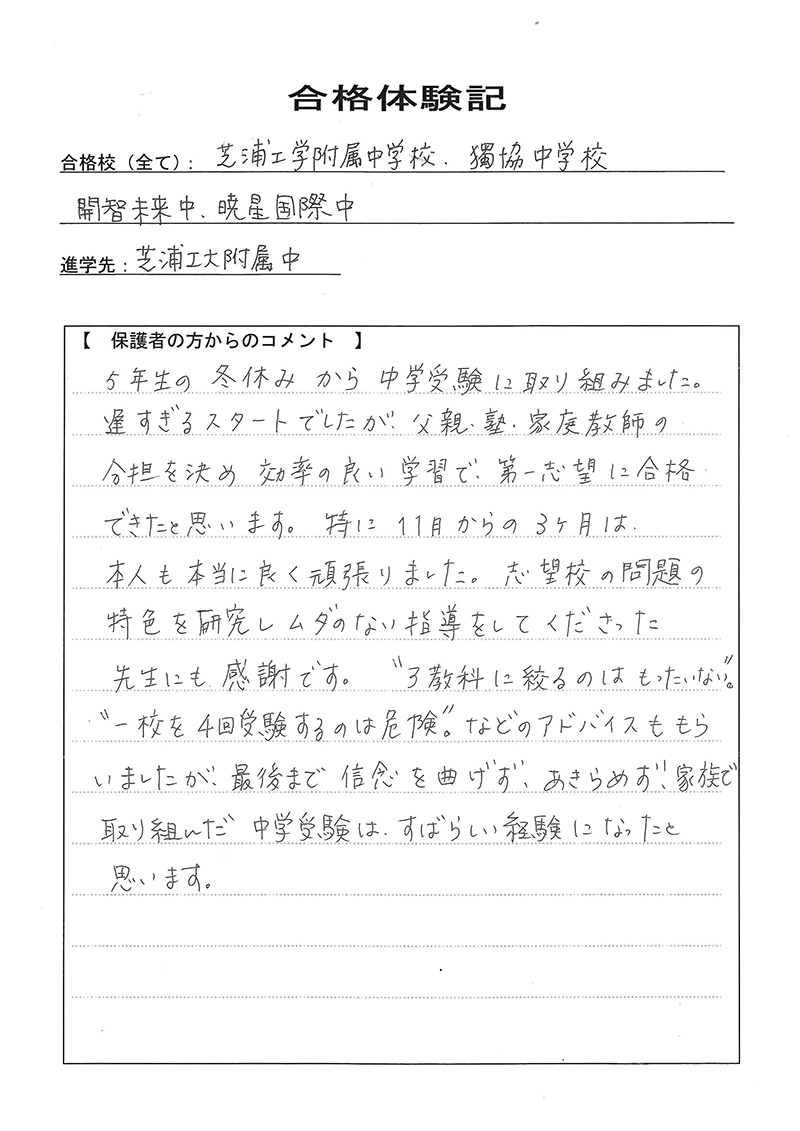 合格体験記
合格校（全て）: 芝浦工学附属中学校、獨協中学校
開智未来中、暁星国際中
進学先: 芝浦工大附属中
【　保護者の方からのコメント　】
5年生の 冬休み から 中学受験に取り組みました。
遅すぎるスタートでしたが、父親・塾・家庭教師の
分担を決め 効率の良い 学習で、第一志望に合格
できたと思います。 特に 11月からの 3ヶ月は、
本人も本当に良く頑張りました。 志望校の問題の
特色を研究しムダのない指導をしてくださった
先生にも 感謝です。 “3教科に絞るのは もったいない”。
“一校を4回受験するのは危険”。などのアドバイスももら
いましたが、最後まで 信念を曲げず、あきらめず、家族で
取り組んだ 中学受験は、すばらしい経験になったと
思います。